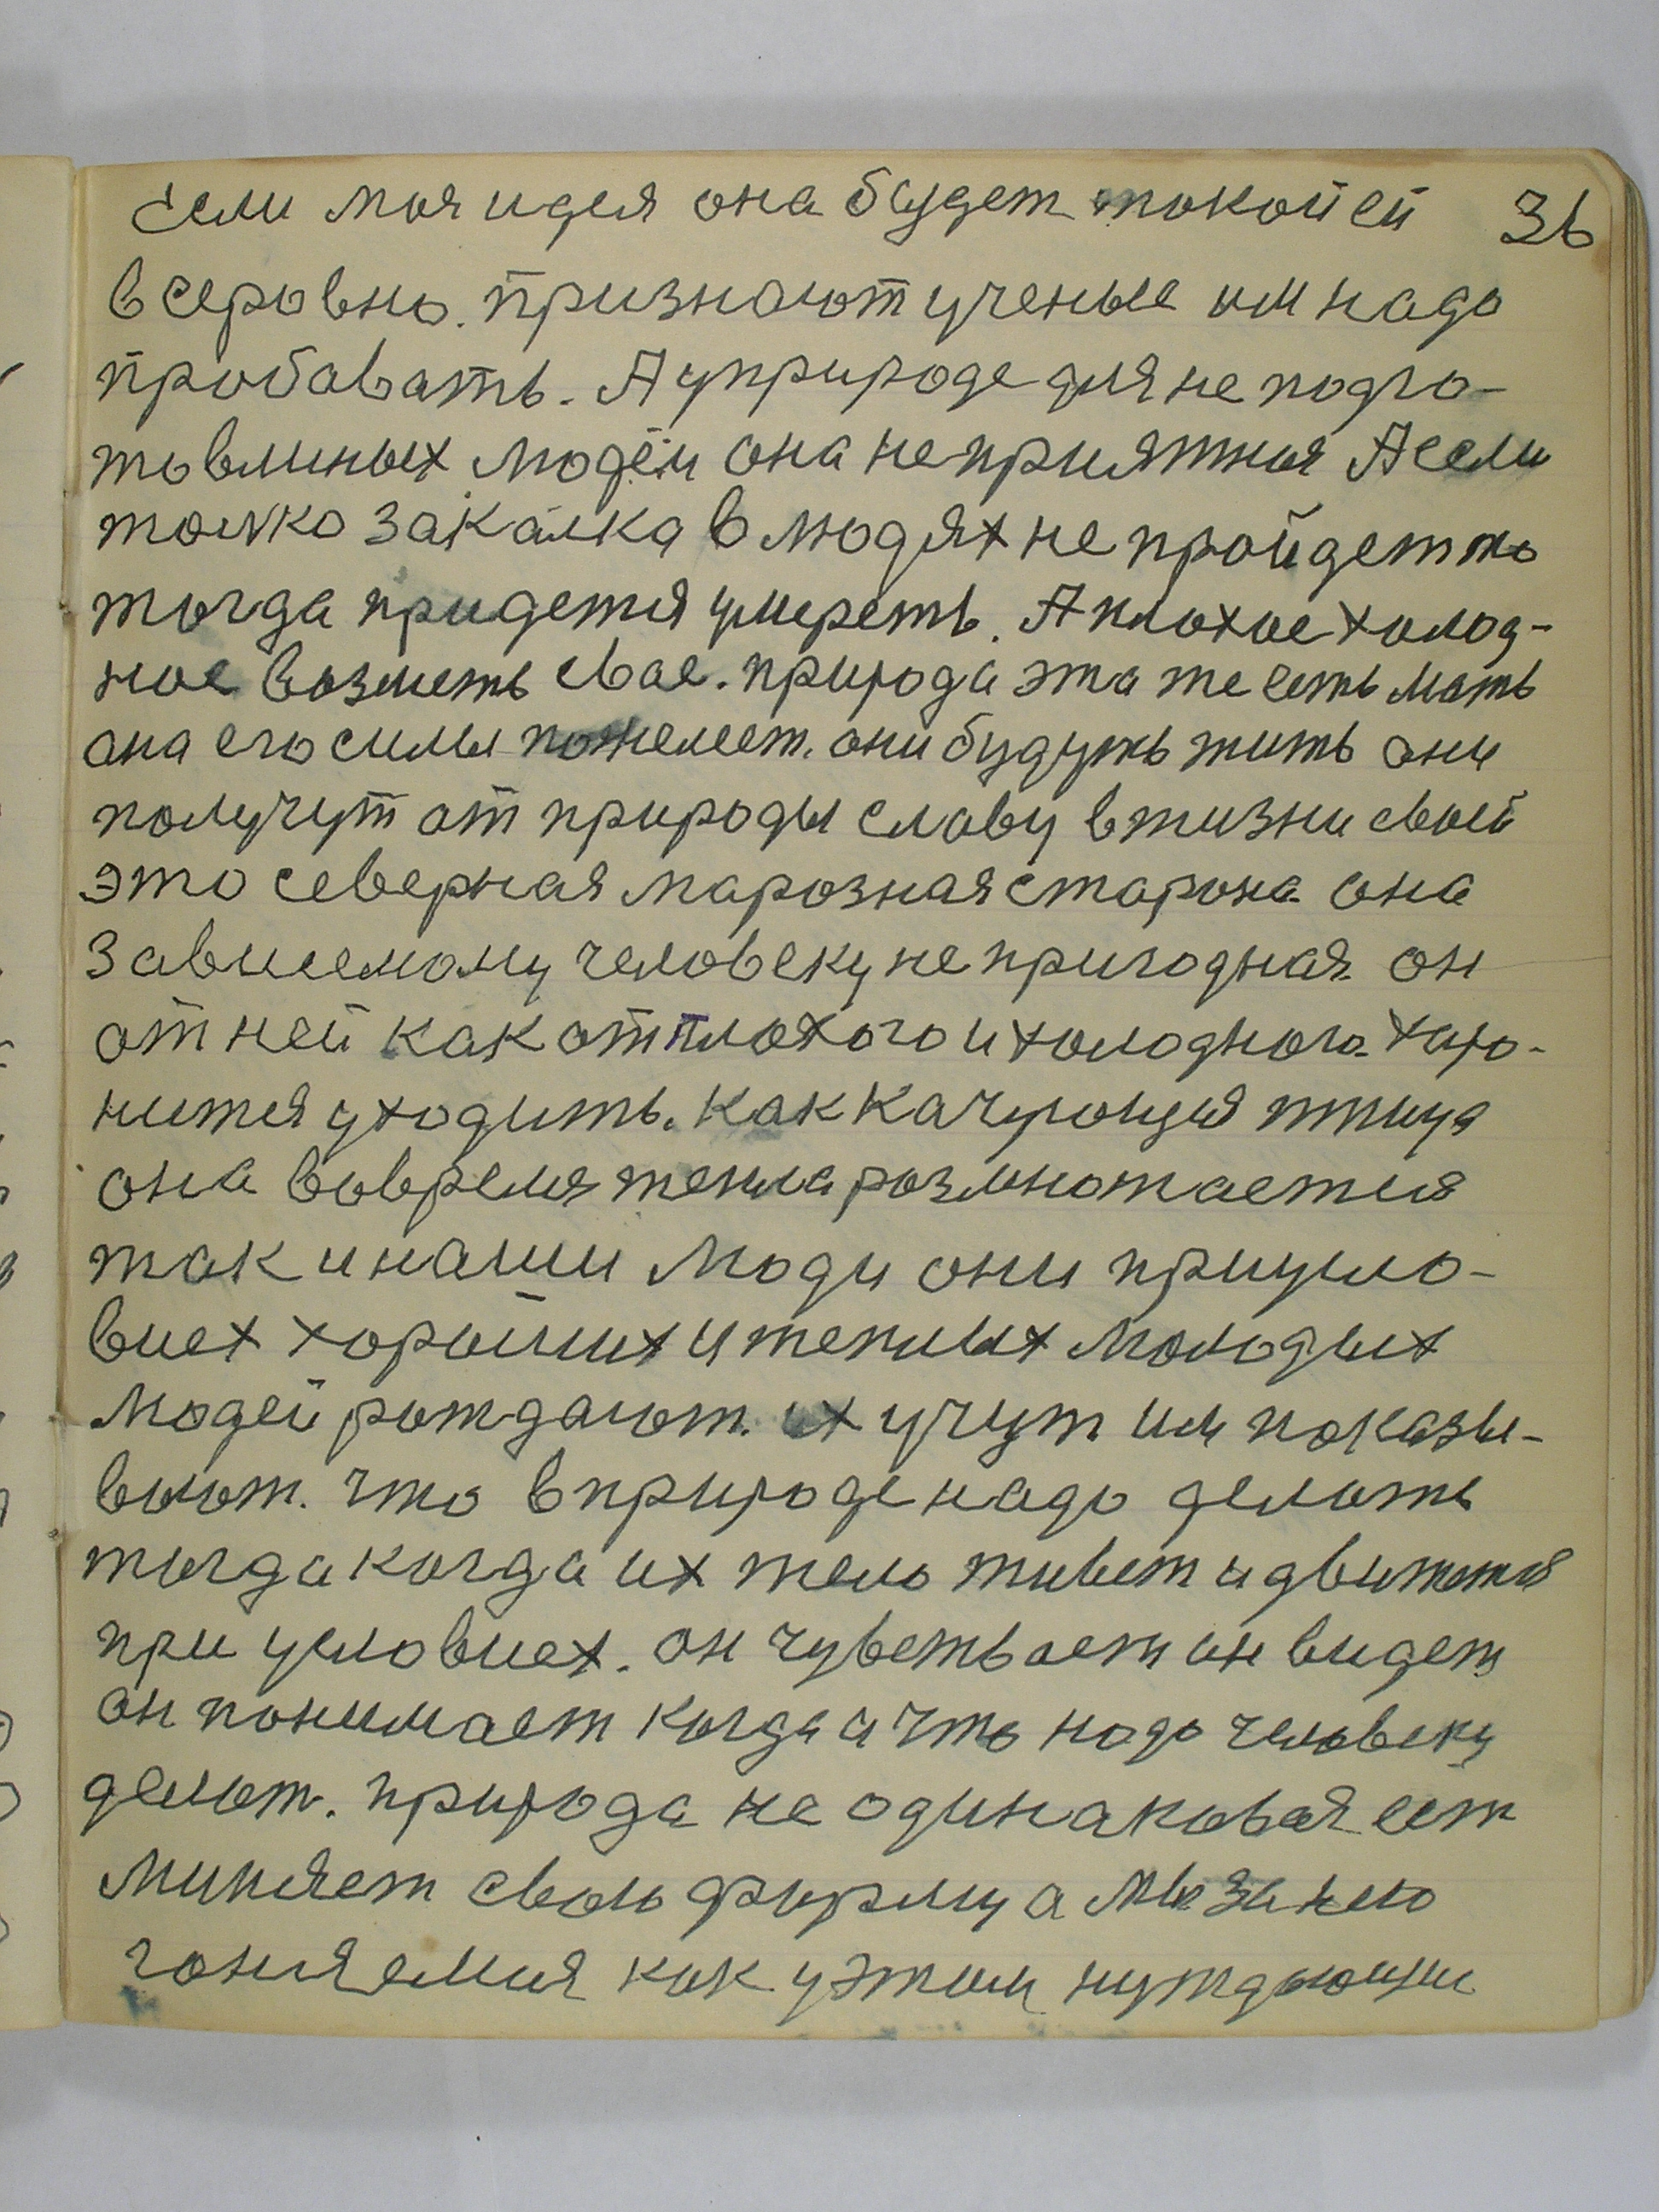 Если моя идея она будет такой ей 36
всеровно. признают ученые им надо
пробавать. А уприроде для не подго-
товлиных людей она неприятная А если
только закалка в людях не пройдет то
тогда придется умереть. А плохое холод-
ное возметь свае. природа эта же есть мать
она его силы пожелеет. они будуть жить они
получут от природы славу в жизни своей
это северная марозная старона она
зависемому человеку не пригодная он
от ней как от плохого и холодного. харо-
нится уходить. как качующая птица
она вовремя тепла розмножается
так и наши люди они приусло-
виех хороших и теплых молодых
людей рождают. их учут им показы-
вают. что в природе надо делать
тогда когда их тело живет и движится
при условиех. он чувствает он видет
он понимает когда и что надо человеку
делат. природа не одинаковая ест
миняет свою форму а мы за нею
гоняемся как у этом нуждающи